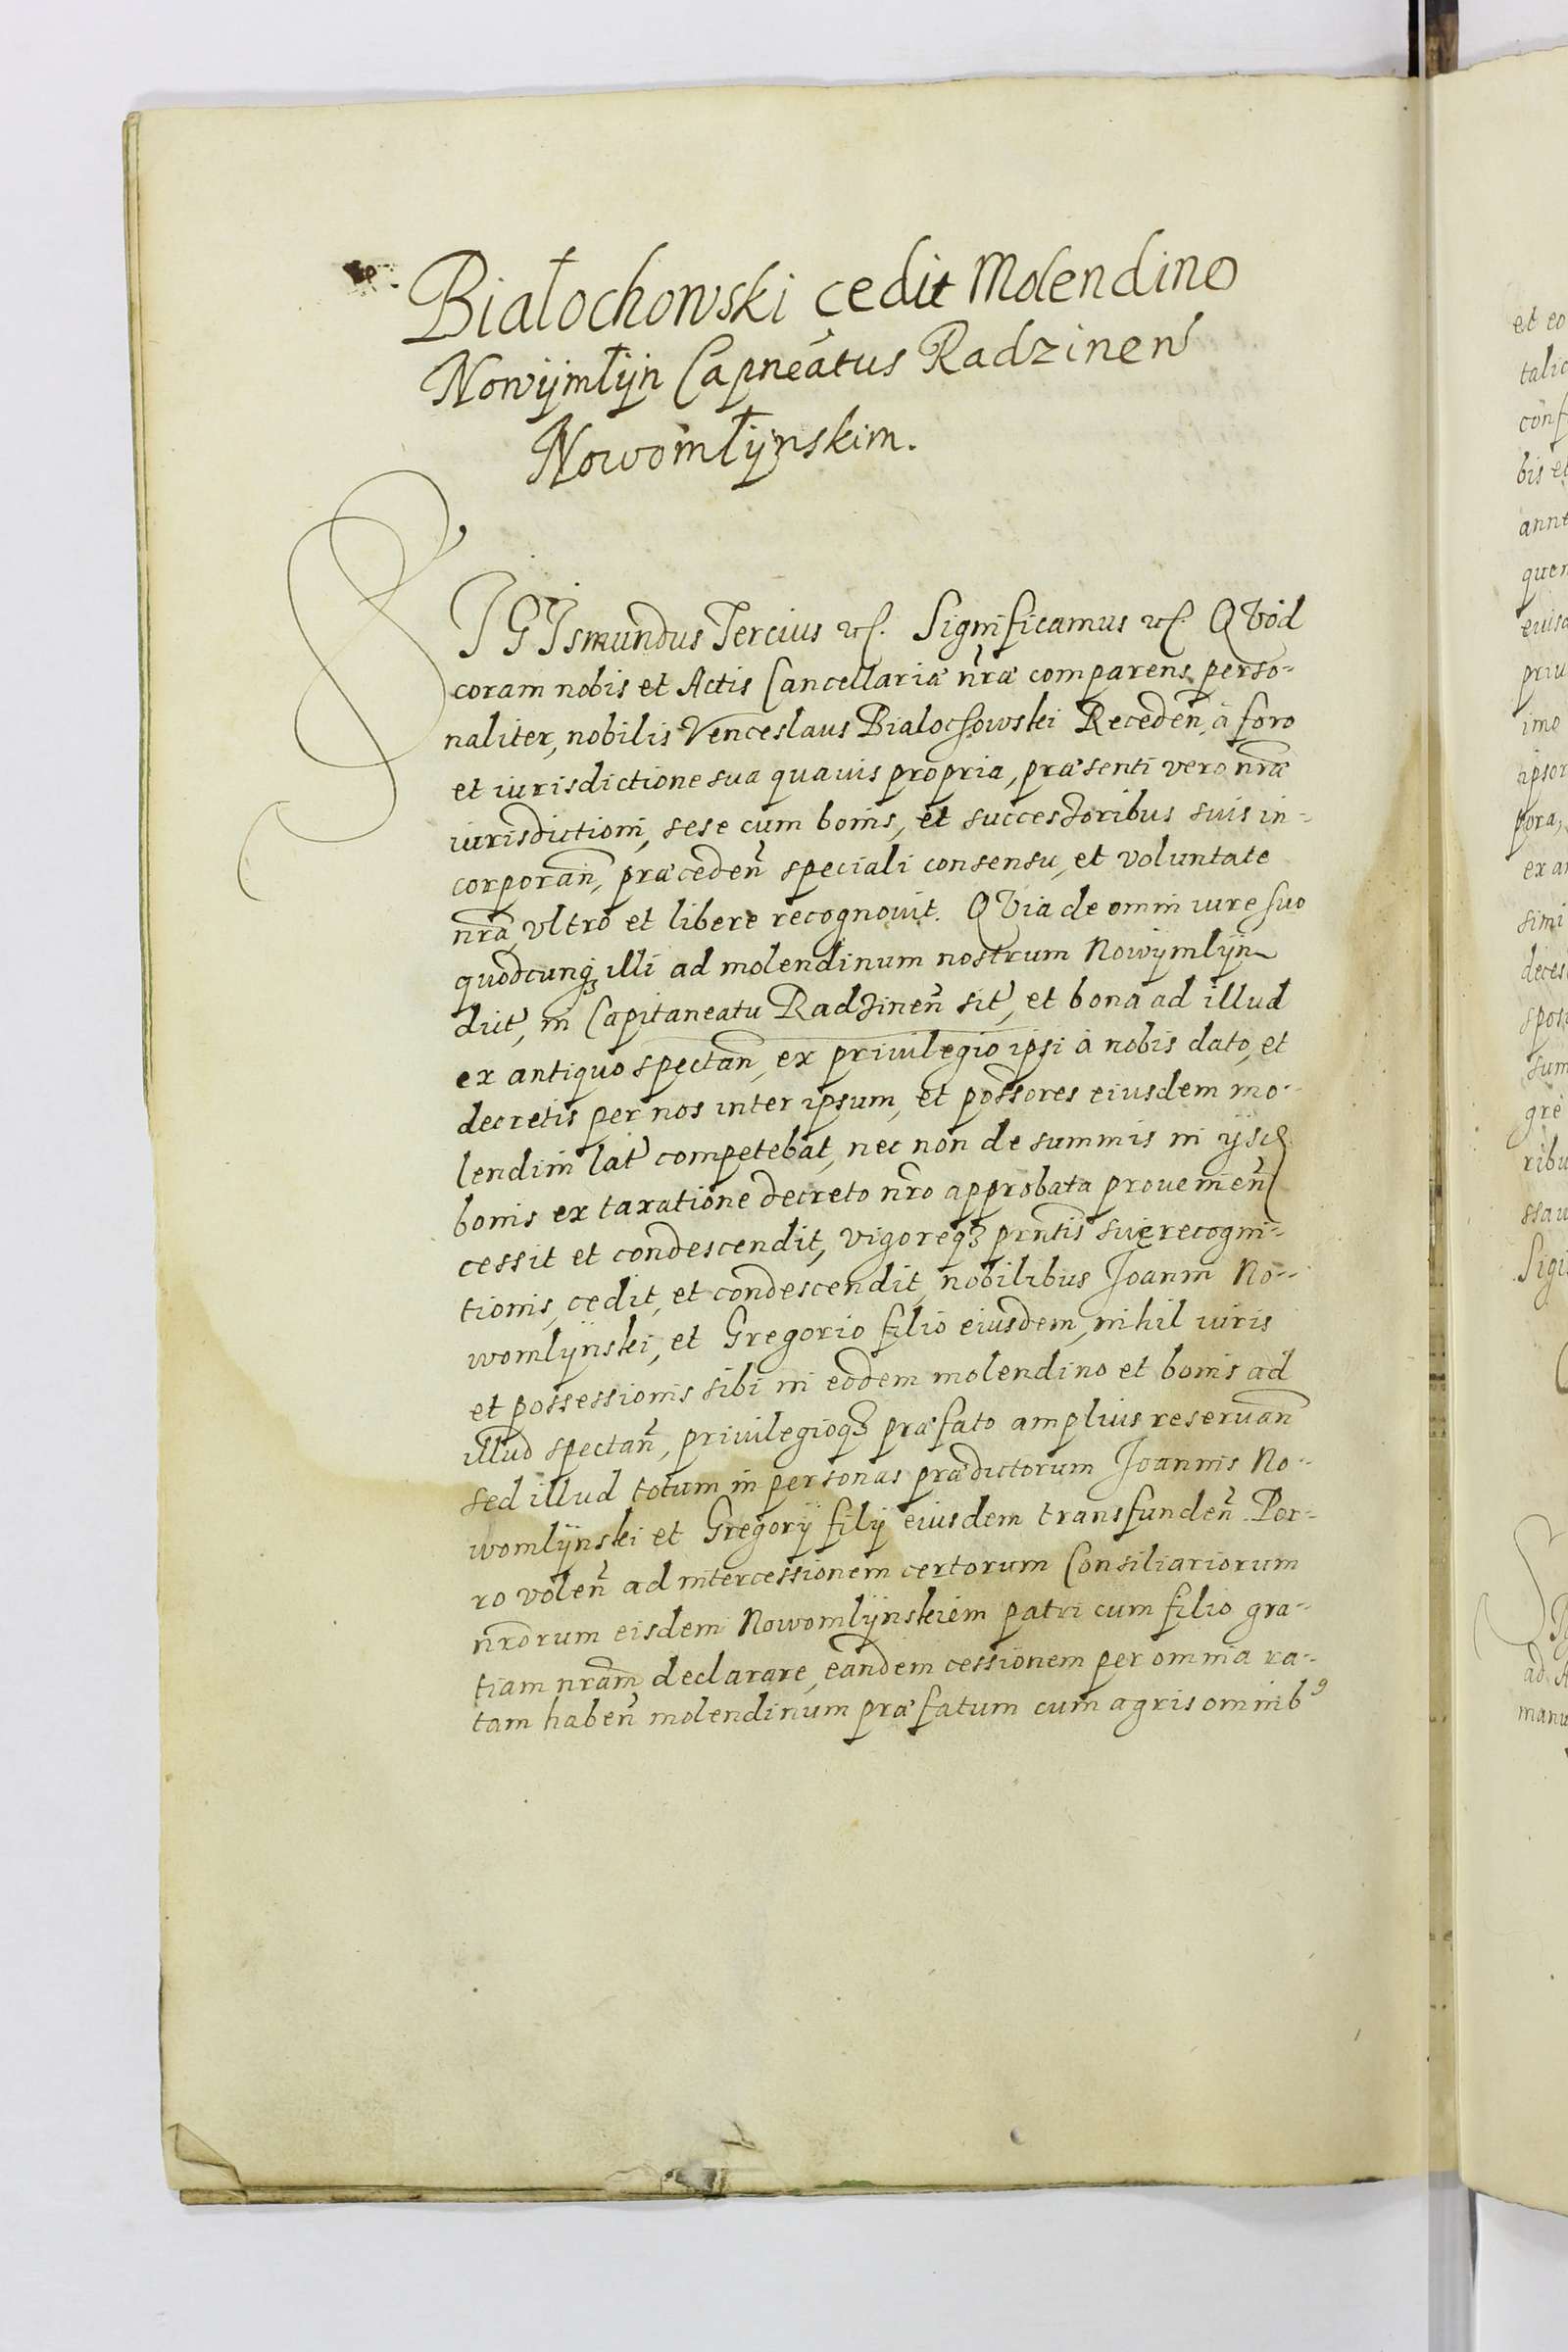 Białochowski cedit Molendino
Nowÿmłÿn Capneatus Radzinen
Nowomłÿnskim.
SIGIsmundus Tercius etc. Significamus etc. QVod
coram nobis et Actis Cancellariæ nræ comparens perso-
naliter, nobilis Venceslaus Bialochowski Receden̄ à foro
et iurisdictione sua quauis propria, præsenti vero nræ
iurisdictioni, sese cum bonis, et successoribus suis in-
corporan̄, præceden̄ speciali consensu, et voluntate
nrā, vltro et libere recognouit. QVia de omni iure suo
quodcunqȝ illi ad molendinum nostrum Nowÿmlÿn
dict̄, in Capitaneatu Radzinen̄ sit̄, et bona ad illud
ex antiquo spectan̄, ex priuilegio ipsi à nobis dato, et
decretis per nos inter ipsum, et possōres eiusdem mo-
lendini lat̄ competebat, nec non de summis in ijsd
bonis ex taxatione decreto nr̄o approbata prouenien̄
cessit et condescendit, vigoreqȝ prn̄tis suę recogni-
tionis, cedit, et condescendit, nobilibus Joanni No-
womlÿnski, et Gregorio filio eiusdem, nihil iuris
et possessionis sibi in eodem molendino et bonis ad
illud spectan̄, priuilegioqȝ præfato amplius reseruan̄
sed illud totum in personas prædictorum Joannis No-
womlÿnski et Gregorij filij eiusdem transfunden̄. Por-
ro volen̄ ad intercessionem certorum Consiliariorum
nr̄orum eisdem Nowomlÿnskiem patri cum filio gra-
tiam nrām declarare, eandem cessionem per omnia ra-
tam haben̄ molendinum præfatum cum agris omnibꝰ
et eo
talic
conf
bis et
anne
quen
eiusd
priu
imo
ipsor
pora,
ex an
simi
deces
spos
sum
gre
ribu
ssau
Sigi
ad A
manu